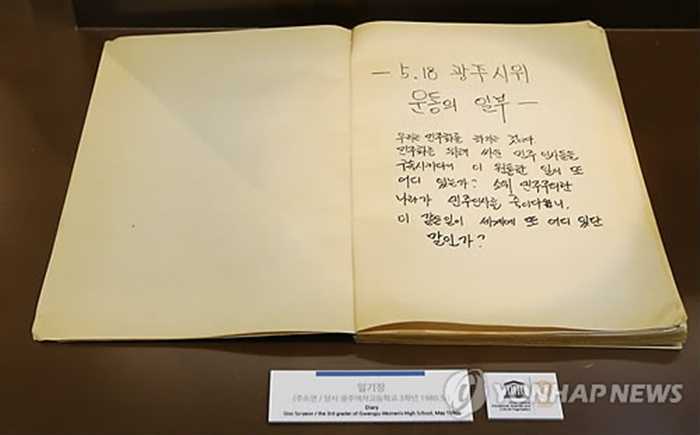 - 5.18 광주시위
운동의 일부 -
우리는 민주화를 바라는 것이다.
민주화를 위해 싸운 민주 인사들을
구속시키다니 더 원통한 일이 또
어디 있는가? 소위 민주주의란
나라가 민주인사를 죽이다니,
이 같은 일이 세계에 또 어디 있단
말인가?
일기장
(주소연 / 당시 광주여자고등학교 3학년 1980.5)
Diary
/ the 3rd grader of Gwangju Women's High School, May 1980
unesco
YONHAP NEWS